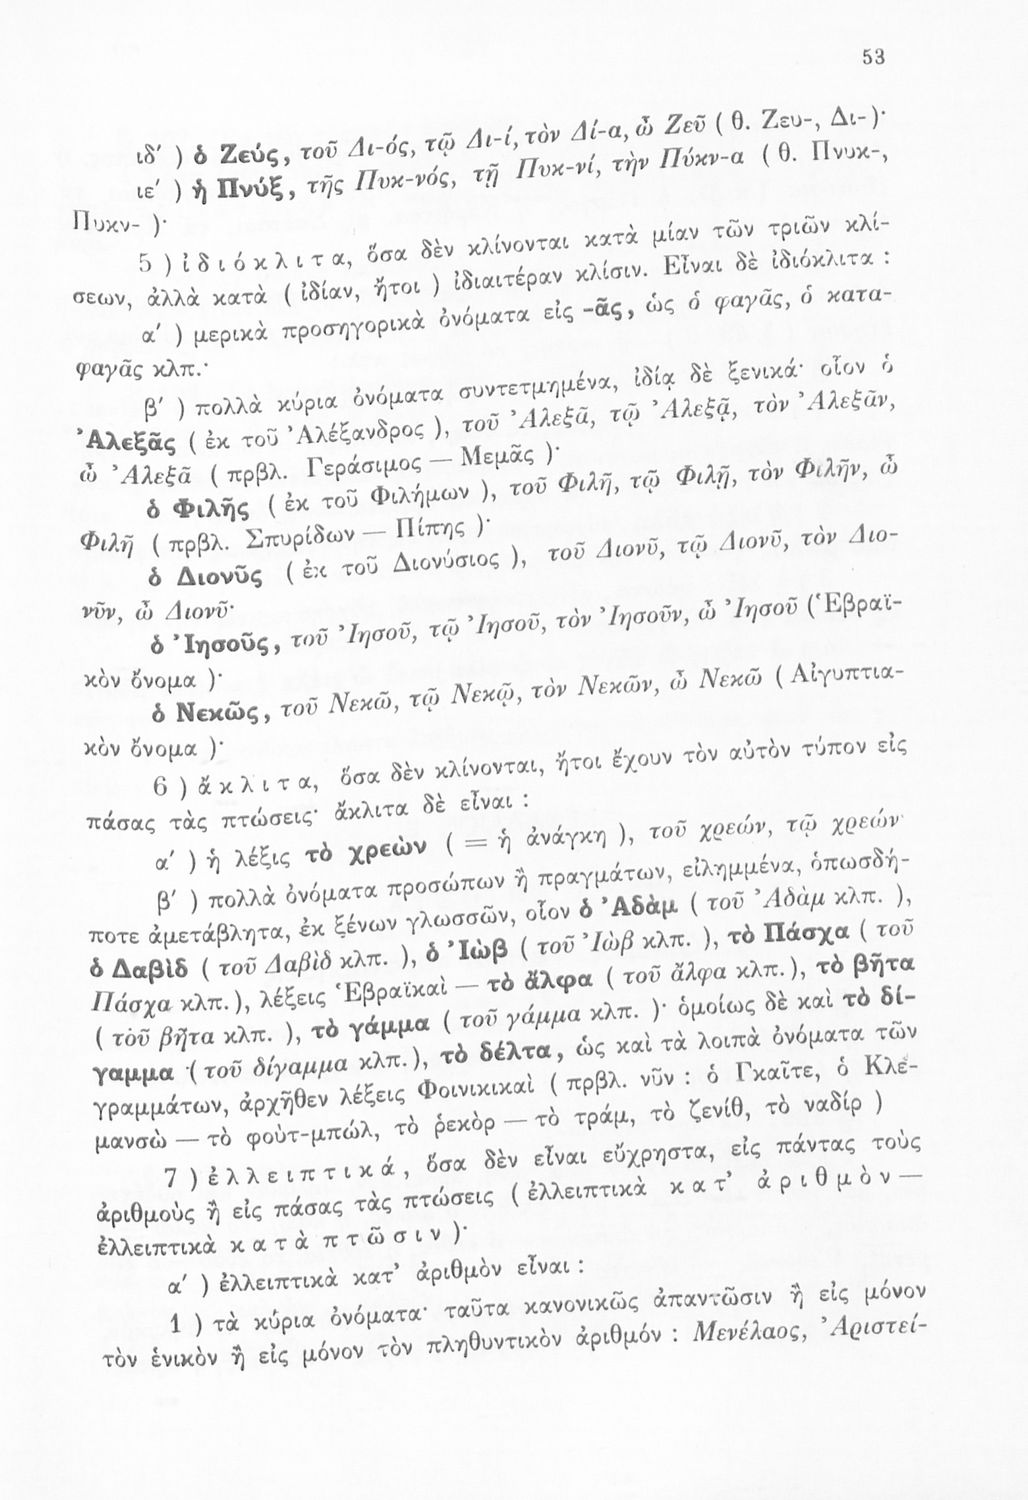 53
ιδ' ) ὁ Ζεύς, τοῦ Δι-ός, τῷ Δι-ί, τὸν Δί-α, ὦ Ζεῦ ( θ. Ζευ-, Δι-)·
ιε' ) ἡ Πνύξ, τῆς Πυκ-νός, τῇ Πυκ-νί, τὴν Πύκν-α ( θ. Πνυκ-,
Πυκν- )·
5 ) ἰδιόκλιτα, ὅσα δὲν κλίνονται κατὰ μίαν τῶν τριῶν κλί-
σεων, ἀλλὰ κατὰ ( ἰδίαν, ἤτοι ) ἰδιαιτέραν κλίσιν. Εἶναι δὲ ἰδιόκλιτα :
α' ) μερικὰ προσηγορικὰ ὀνόματα εἰς -ᾶς, ὡς ὁ φαγᾶς, ὁ κατα-
φαγᾶς κλπ.·
β' ) πολλὰ κύρια ὀνόματα συντετμημένα, ἰδίᾳ δὲ ξενικά· οἷον ὁ
Ἀλεξᾶς ( ἐκ τοῦ Ἀλέξανδρος ), τοῦ Ἀλεξᾶ, τῷ Ἀλεξᾷ, τὸν Ἀλεξᾶν,
ὦ Ἀλεξᾶ ( πρβλ. Γεράσιμος — Μεμᾶς )·
ὁ Φιλῆς ( ἐκ τοῦ Φιλήμων ), τοῦ Φιλῆ, τῷ Φιλῇ, τὸν Φιλῆν, ὦ
Φιλῆ ( πρβλ. Σπυρίδων — Πίπης )·
ὁ Διονῦς ( ἐκ τοῦ Διονύσιος ), τοῦ Διονῦ, τῷ Διονῦ, τὸν Διο-
νῦν, ὦ Διονῦ·
ὁ Ἰησοῦς, τοῦ Ἰησοῦ, τῷ Ἰησοῦ, τὸν Ἰησοῦν, ὦ Ἰησοῦ (Ἑβραϊ-
κὸν ὄνομα )·
ὁ Νεκῶς, τοῦ Νεκῶ, τῷ Νεκῷ, τὸν Νεκῶν, ὦ Νεκῶ ( Αἰγυπτια-
κὸν ὄνομα )·
6 ) ἄκλιτα, ὅσα δὲν κλίνονται, ἤτοι ἔχουν τὸν αὐτὸν τύπον εἰς
πάσας τὰς πτώσεις· ἄκλιτα δὲ εἶναι :
α' ) ἡ λέξις τὸ χρεὼν ( = ἡ ἀνάγκη ), τοῦ χρεών, τῷ χρεών·
β' ) πολλὰ ὀνόματα προσώπων ἢ πραγμάτων, εἰλημμένα, ὁπωσδή-
ποτε ἀμετάβλητα, ἐκ ξένων γλωσσῶν, οἷον ὁ Ἀδὰμ ( τοῦ Ἀδὰμ κλπ. ),
ὁ Δαβὶδ ( τοῦ Δαβὶδ κλπ. ), ὁ Ἰὼβ ( τοῦ Ἰὼβ κλπ. ), τὸ Πάσχα ( τοῦ
Πάσχα κλπ.), λέξεις Ἑβραϊκαὶ — τὸ ἄλφα ( τοῦ ἄλφα κλπ.), τὸ βῆτα
( τοῦ βῆτα κλπ. ), τὸ γάμμα ( τοῦ γάμμα κλπ. )· ὁμοίως δὲ καὶ τὸ δί-
γαμμα ( τοῦ δίγαμμα κλπ.), τὸ δέλτα, ὡς καὶ τὰ λοιπὰ ὀνόματα τῶν
γραμμάτων, ἀρχῆθεν λέξεις Φοινικικαὶ ( πρβλ. νῦν : ὁ Γκαῖτε, ὁ Κλε-
μανσὼ — τὸ φοὺτ-μπώλ, τὸ ῥεκὸρ — τὸ τράμ, τὸ ζενίθ, τὸ ναδίρ )
7 ) ἐλλειπτικά, ὅσα δὲν εἶναι εὔχρηστα, εἰς πάντας τοὺς
ἀριθμοὺς ἢ εἰς πάσας τὰς πτώσεις ( ἐλλειπτικὰ κατ' ἀριθμὸν —
ἐλλειπτικὰ κατὰ πτῶσιν )·
α' ) ἐλλειπτικὰ κατ' ἀριθμὸν εἶναι :
1 ) τὰ κύρια ὀνόματα· ταῦτα κανονικῶς ἀπαντῶσιν ἢ εἰς μόνον
τὸν ἑνικὸν ἢ εἰς μόνον τὸν πληθυντικὸν ἀριθμόν : Μενέλαος, Ἀριστεί-